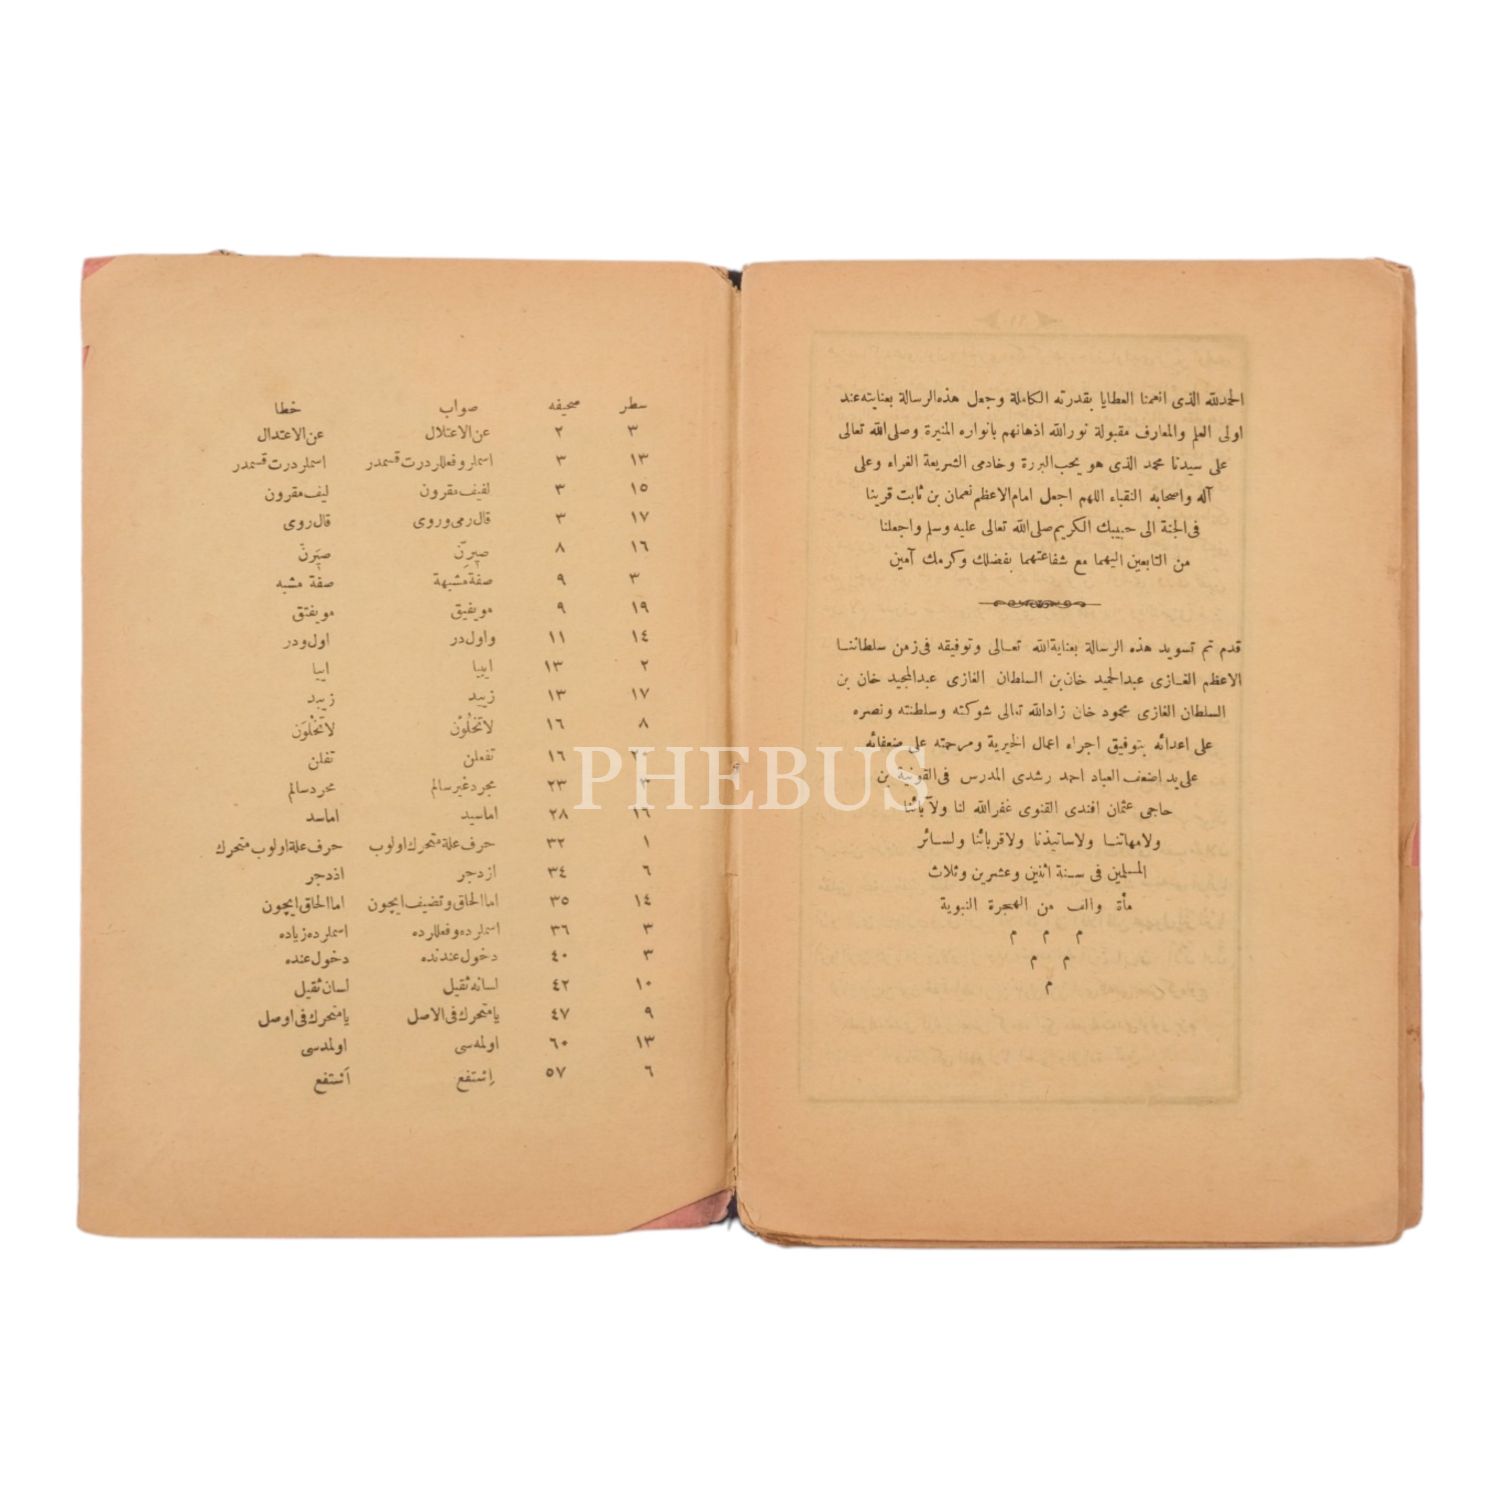 الحمدلله الذى انعمنا العطايا بقدرته الكاملة وجعل هذه‌الرسالة بعنايته عند
اولى العلم والمعارف مقبولة نورالله اذهانهم بانواره المنبرة وصلى الله تعالى
على سيدنا محمد الذى هو يحب‌البررة وخادمى الشريعة الغراء وعلى
آله واصحابه النقباء اللهم اجعل امام‌الاعظم نعمان بن ثابت قرينا
فى الجنة الى حبيبك الكريم صلى الله تعالى عليه وسلم واجعلنا
من التابعين اليهما مع شفاعتهما بفضلك وكرمك آمين
قدم تم تسويد هذه الرسالة بعناية‌الله تعالى وتوفيقه فى زمن سلطاننا
الاعظم الغازى عبدالحميد خان بن السلطان الغازى عبدالمجيد خان بن
السلطان الغازى محمود خان زادالله تعالى شوكته وسلطنته ونصره
على اعدائه بتوفيق اجراء اعمال الخيرية ومرحمته على ضعفائه
على يد اضعف العباد احمد رشدى المدرس فى القونية بن
حاجى عثمان افندى القنوى غفرالله لنا ولآبائنا
ولامهاتنا ولاساتيذنا ولاقربائنا ولسائر
المسلمين فى سنة اثنين وعشرين وثلاث
مأة والف من الهجرة النبوية
م م م
م م
م
سطر صحيفه صواب خطا
٣ ٢ عن‌الاعتلال عن‌الاعتدال
١٣ ٣ اسملر وفعللر درت قسمدر اسملر درت قسمدر
١٥ ٣ لفيف مقرون ليف مقرون
١٧ ٣ قال رمى وروى قال روى
١٦ ٨ صيرن صيرن
٣ ٩ صفة مشبهة صفة مشبه
١٩ ٩ مويفيق مويفتق
١٤ ١١ واول در اول ودر
٢ ١٣ ايبيا ايبا
١٧ ١٣ زييد زيبد
٨ ١٦ لاتخلون لاتخلون
٢ ١٦ تفعلن تفلن
٣ ٢٣ مجرد غيرسالم مجرد سالم
١٦ ٢٨ اماسيد اماسد
١ ٣٢ حرف علة متحرك اولوب حرف علة اولوب متحرك
٦ ٣٤ ازدجر اذدجر
١٤ ٣٥ اما الحاق وتضيف ايچون اما الحاق ايچون
٣ ٣٦ اسملرده وفعللرده اسملرده زياده
٣ ٤٠ دخول عندنده دخول عنده
١٠ ٤٢ لسانه ثقيل لسان ثقيل
٩ ٤٧ يا متحرك فى الاصل يا متحرك فى اوصل
١٣ ٦٠ اولمه‌سى اولمدسى
٦ ٥٧ اِشتفع اَشتفع
PHEBUS